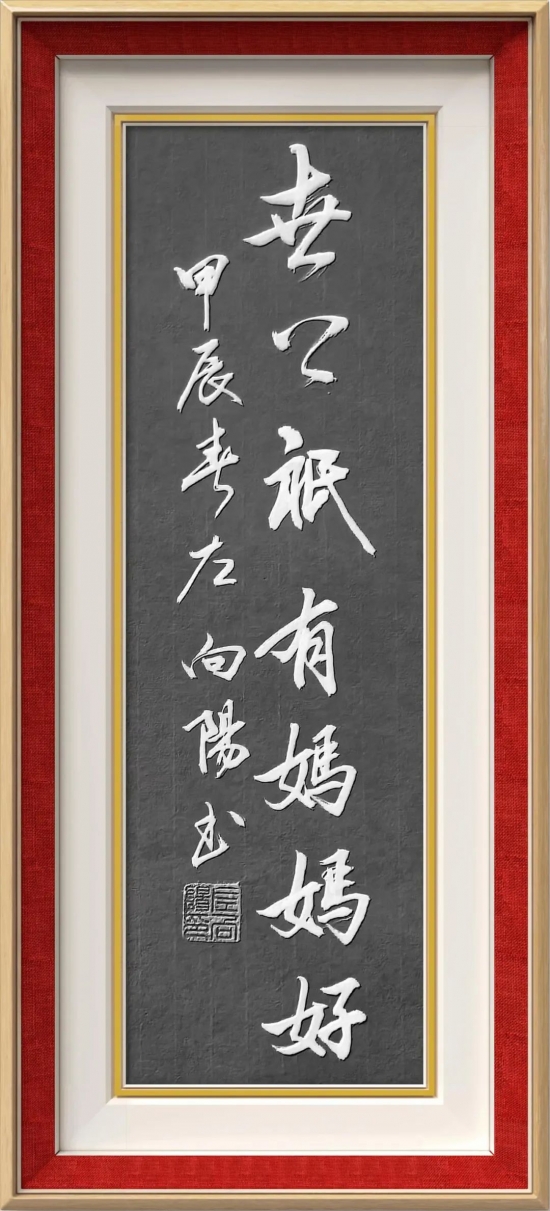 世上祇有媽媽好
甲辰春左向陽书